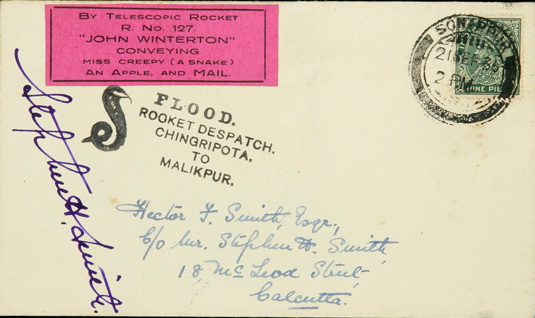 BY TELESCOPIC ROCKET
R. No. 127.
"JOHN WINTERTON"
CONVEYING
MISS CREEPY (A SNAKE)
AN APPLE, AND MAIL.
FLOOD.
ROCKET DESPATCH.
CHINGRIPOTA.
TO
MALIKPUR.
SONARPUR
21 SEP 36
2 PM
NINE PIES
Stephen H. Smith.
Hector F. Smith, Esqr.,
C/o Mr. Stephen H. Smith
18 McLeod Street
Calcutta.